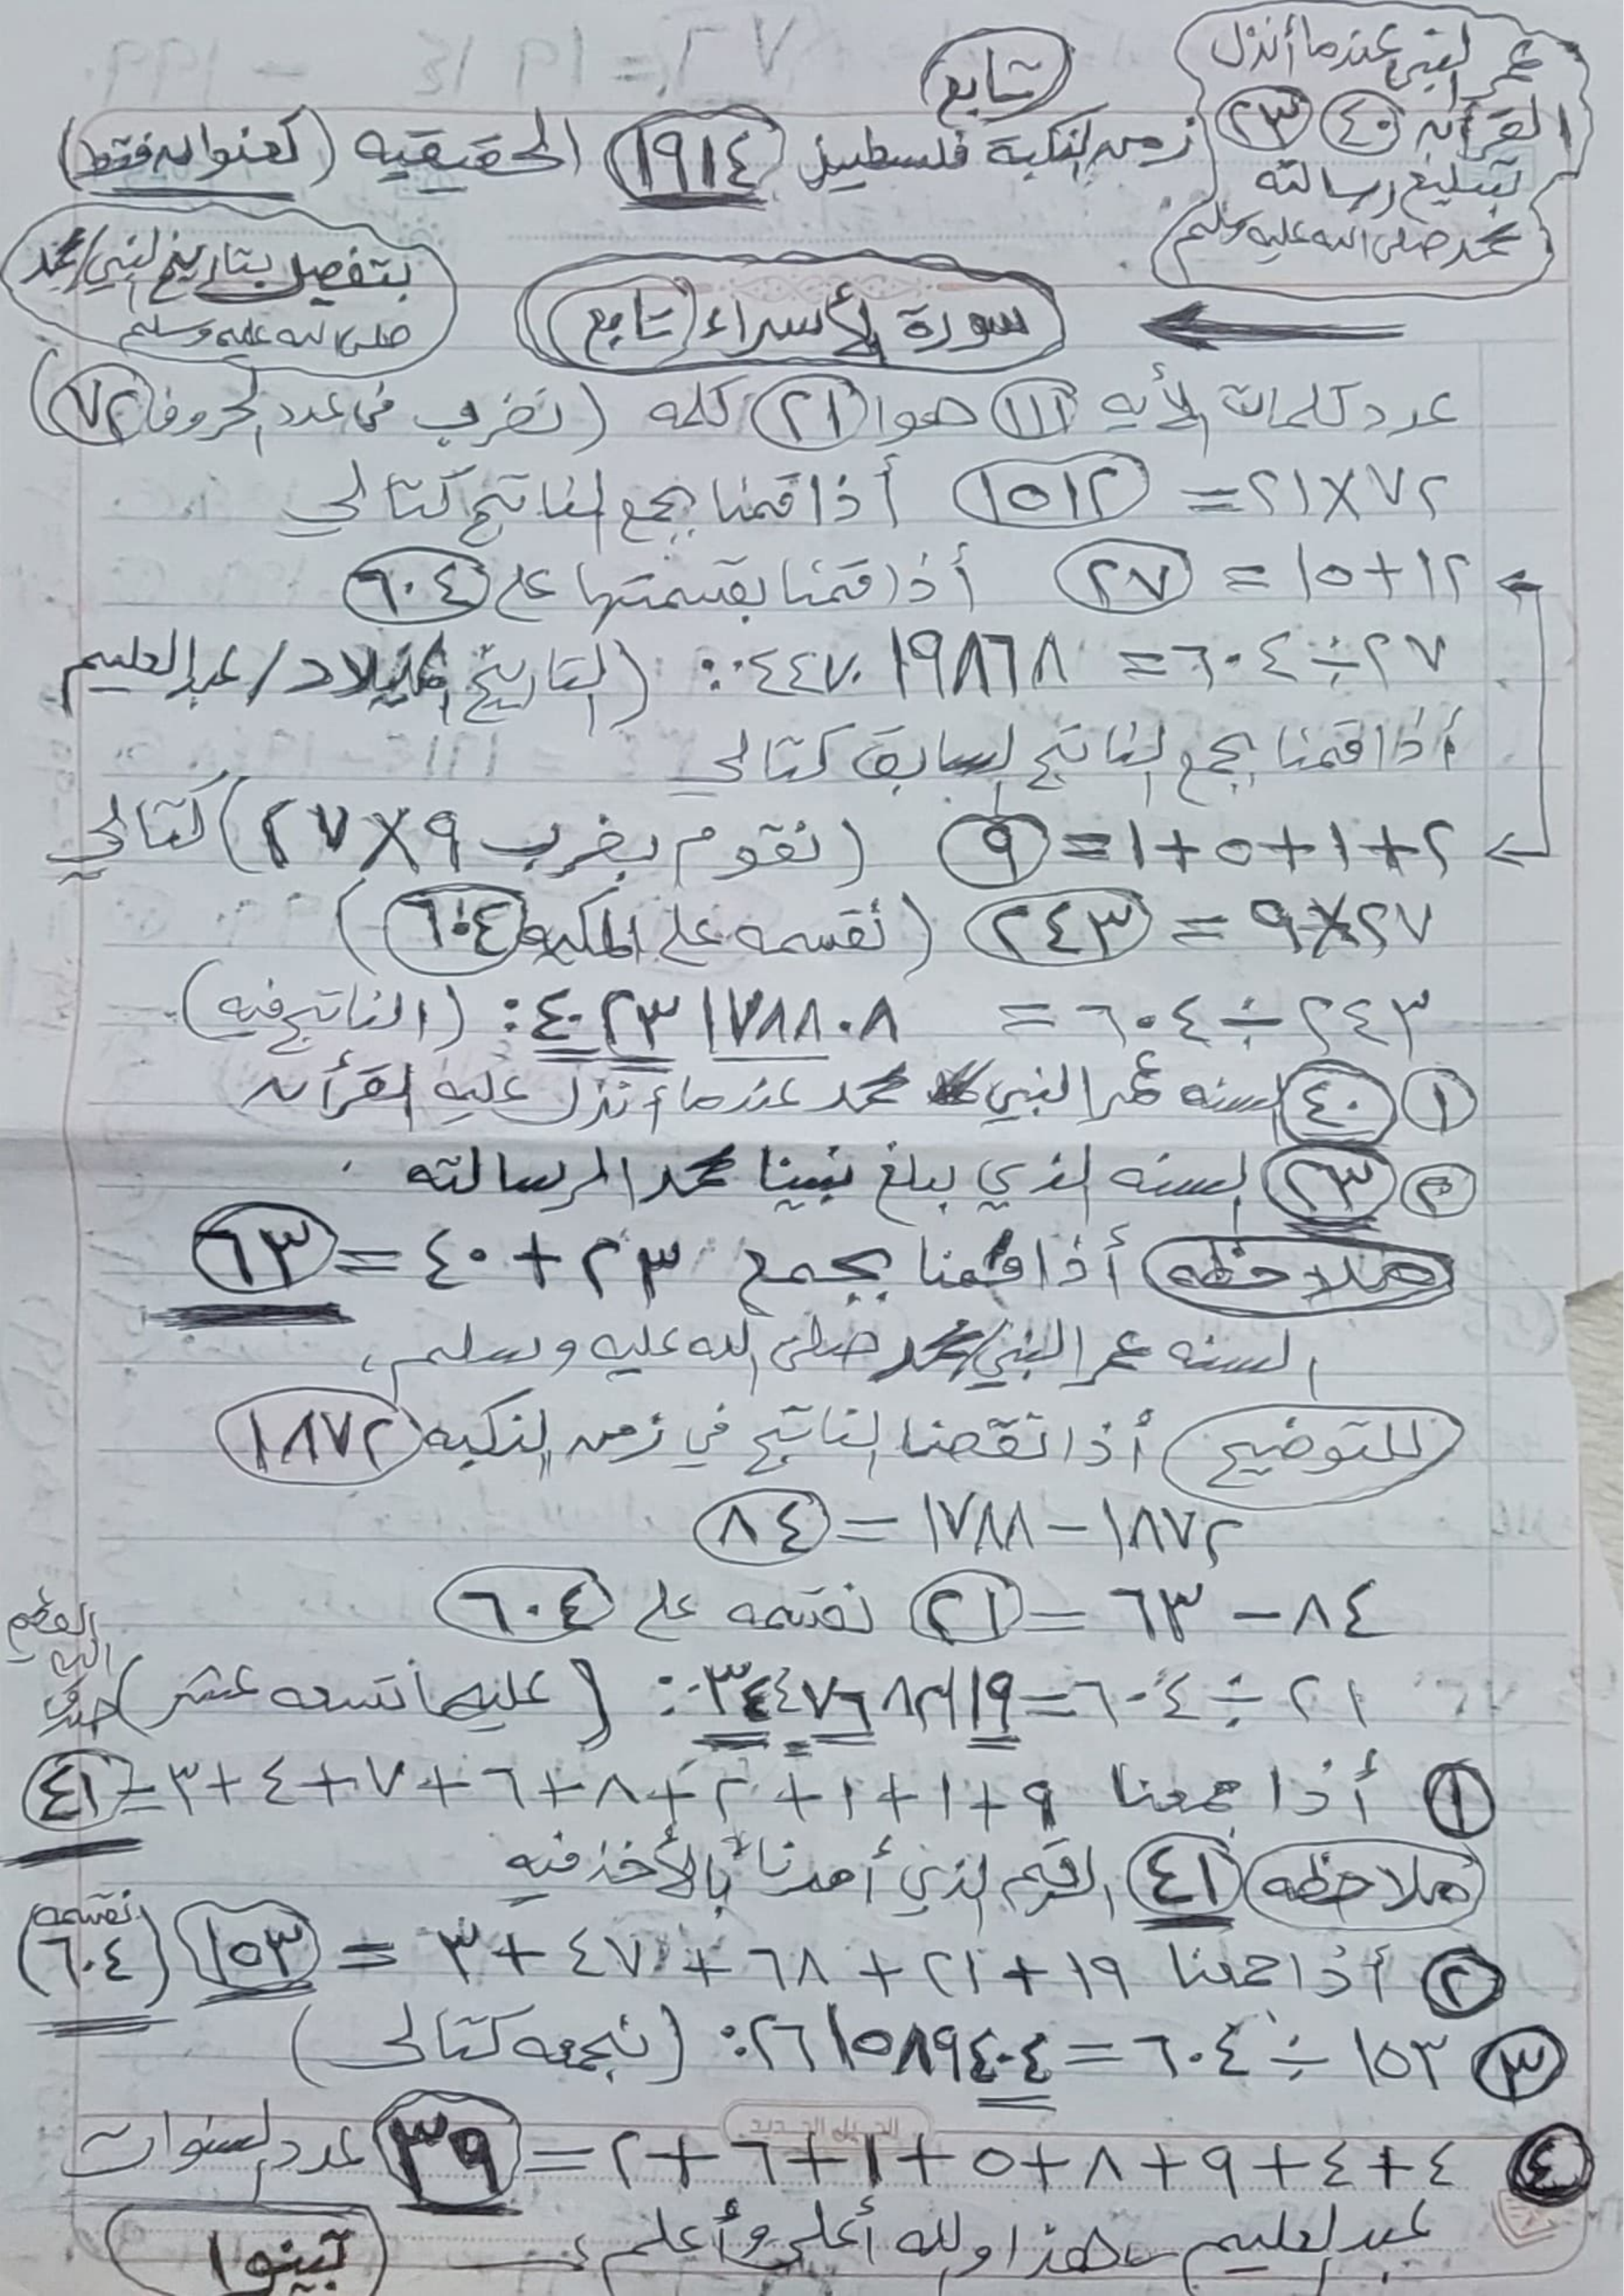 تابع
عمر النبي عندما أنذل
القرأن ٤٠ ٢٣
بتبليغ رسالته
محمد صلى الله عليه وسلم
زمن النكبة فلسطين ١٩١٤ الحقيقيه (كعنوان فقط)
بتفصيل بتاريخ النبي/محمد
صلى الله عليه وسلم
سورة الأسراء (تابع)
عدد كلمات الأيه ١١١ هوا ٢١ كلمه (نضرب في عدد الحروف ٧٢)
٧٢×٢١= ١٥١٢ أذا قمنا بجمع الناتج كتالي
١٢+١٥= ٢٧ أذا قمنا بقسمتها على ٦٠٤
٢٧÷٦٠٤= ٠٫٠٤٤٧٠١٩٨٦٧٨ (التاريخ الميلاد/عبدالعليم
أذا قمنا بجمع الناتج السابق كتالي
٢+١+٥+١=٩ (نقوم بضرب ٩×٢٧) كتالي
٢٧×٩= ٢٤٣ (نقسمه على ٦٠٤)
٢٤٣÷٦٠٤= ٠٫٤٠٢٣١٧٨٨٠٨ (الناتج فيه)
١ ٤٠ السنه عمر النبي محمد عندما أنذل عليه القرأن
٢ ٢٣ السنه الذي بلغ نبينا محمد الرسالته
ملاحظه أذا قمنا بجمع ٢٣+٤٠=٦٣
السنه عمر النبي/محمد صلى الله عليه وسلم،
للتوضيح أذا نقصنا الناتج في زمن النكبه ١٨٧٢
١٨٧٢-١٧٨٨=٨٤
٨٤-٦٣=٢١ نقسمه على ٦٠٤
٢١÷٦٠٤=٠٫٠٣٤٤٧٦٨٢١١٩ (عليها تسعه عشر) صدق
الله
العظيم
١ أذا جمعنا ٩+١+١+٢+٨+٦+٧+٤+٣=٤١
ملاحظه ٤١ الرقم الذي أمرنا بالأخذ فيه
٢ أذا جمعنا ١٩+٢١+٦٨+٤٧+٣= ١٥٣ (نقسمه
٦٠٤)
٣ ١٥٣÷٦٠٤=٠٫٢٦١٥٨٩٤٠٤ (نجمعه كتالى)
٤ ٤+٤+٩+٨+٥+١+٦+٢=٣٩ عدد السنوات
عبدالعليم هذا ولله أعلى وأعلم،
تبينوا